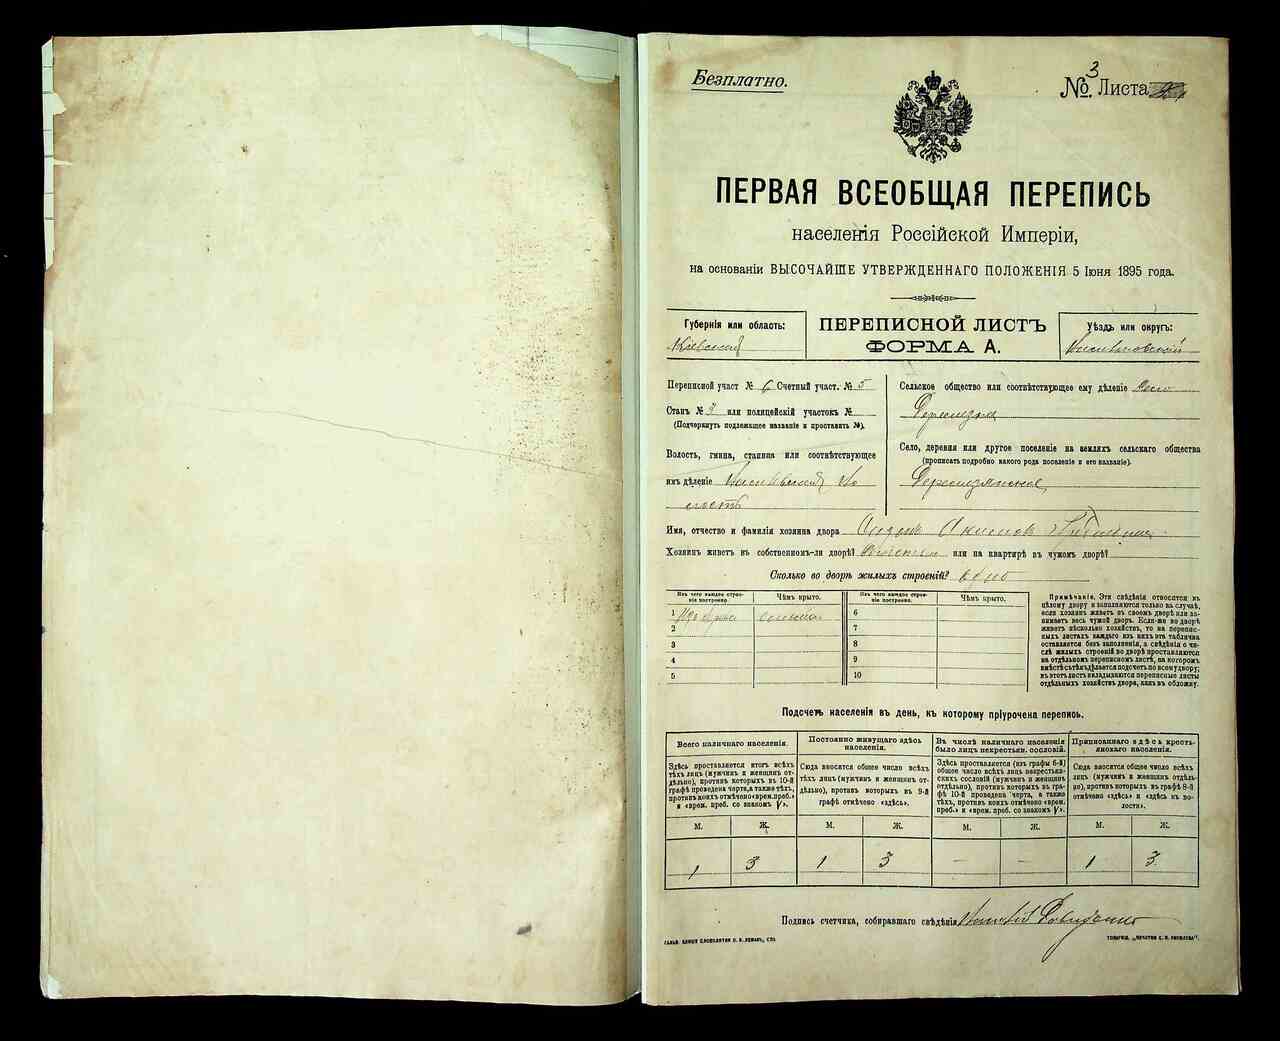 Безплатно.
№ 3 Листа
ПЕРВАЯ ВСЕОБЩАЯ ПЕРЕПИСЬ
населенія Россійской Имперіи,
на основаніи ВЫСОЧАЙШЕ УТВЕРЖДЕННАГО ПОЛОЖЕНІЯ 5 Іюня 1895 года.
Губернія или область:
Кіевская
ПЕРЕПИСНОЙ ЛИСТЪ
ФОРМА А.
Уѣздъ или округъ:
Васильковскій
Переписной участ. № 6 Счетный участ. № 5
Станъ № 3 или полицейскій участокъ №
(Подчеркнуть подлежащее названіе и проставить №).
Волость, гмина, станица или соотвѣтствующее
имъ дѣленіе
Сельское общество или соотвѣтствующее ему дѣленіе село
Село, деревня или другое поселеніе на земляхъ сельскаго общества
(прописать подробно какого рода поселеніе и его названіе).
Имя, отчество и фамилія хозяина двора
Хозяинъ живетъ въ собственномъ-ли дворѣ? или на квартирѣ въ чужомъ дворѣ?
Сколько во дворѣ жилыхъ строеній? одно
Изъ чего каждое строеніе построено.
Чѣмъ крыто.
Изъ чего каждое строеніе построено.
Чѣмъ крыто.
1 соломой 6
2 7
3 8
4 9
5 10
Примѣчаніе. Эти свѣдѣнія относятся къ
цѣлому двору и заполняются только въ случаѣ,
если хозяинъ живетъ въ своемъ дворѣ или занимаетъ
весь чужой дворъ. Если-же во дворѣ
живетъ нѣсколько хозяйствъ, то на переписныхъ
листахъ каждаго изъ нихъ эта табличка
оставляется безъ заполненія, а свѣдѣнія о числѣ
жилыхъ строеній во дворѣ проставляются
на отдѣльномъ переписномъ листѣ, на которомъ
вмѣстѣ съ тѣмъ дѣлается подсчетъ по всему двору;
въ этотъ листъ вкладываются переписные листы
отдѣльныхъ хозяйствъ двора, какъ въ обложку.
Подсчетъ населенія въ день, къ которому пріурочена перепись.
Всего наличнаго населенія.
Здѣсь проставляется итогъ всѣхъ
тѣхъ лицъ (мужчинъ и женщинъ отдѣльно),
противъ которыхъ въ 10-й
графѣ проведена черта, а также тѣхъ,
противъ коихъ отмѣчено «врем. преб.»
и «врем. преб. со знакомъ V».
Постоянно живущаго здѣсь
населенія.
Сюда вносится общее число всѣхъ
тѣхъ лицъ (мужчинъ и женщинъ отдѣльно),
противъ которыхъ въ 9-й
графѣ отмѣчено «здѣсь».
Въ числѣ наличнаго населенія
было лицъ некрестьян. сословій.
Здѣсь проставляется (изъ графы 6-й)
общее число всѣхъ лицъ некрестьянскихъ
сословій (мужчинъ и женщинъ
отдѣльно), противъ которыхъ въ графѣ
10-й проведена черта, а также
тѣхъ, противъ коихъ отмѣчено «врем.
преб.» и «врем. преб. со знакомъ V».
Приписаннаго здѣсь крестьянскаго
населенія.
Сюда вносится общее число всѣхъ
лицъ (мужчинъ и женщинъ отдѣльно),
противъ которыхъ въ графѣ 8-й
отмѣчено «здѣсь» и «здѣсь въ волости».
М. Ж. М. Ж. М. Ж. М. Ж.
1 3 1 3 — — 1 3
Подпись счетчика, собиравшаго свѣдѣнія